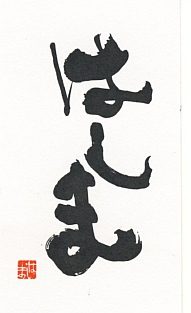 はしま